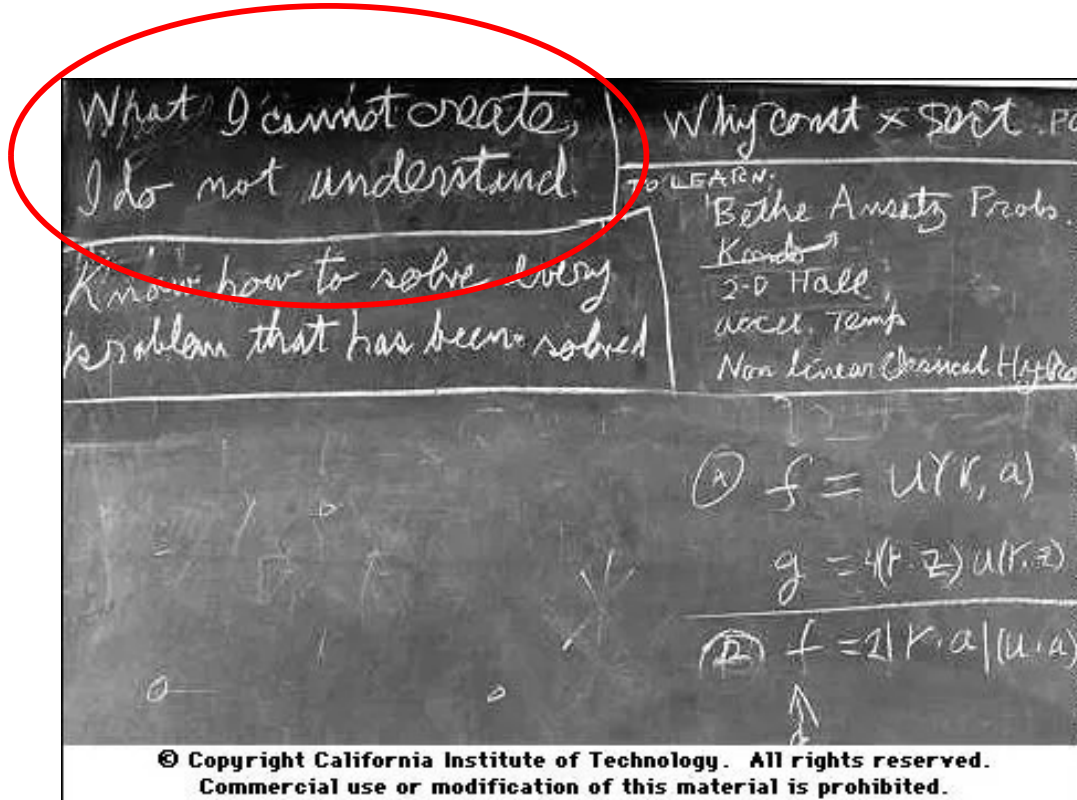 What I cannot create,
I do not understand.
Know how to solve every
problem that has been solved
Why const × sort. PO
TO LEARN:
Bethe Ansatz Probs
Kondo
2-D Hall
accel. Temp
Non linear Classical Hydro
(A) f = u(r, a)
g = 4(r·z) u(r, z)
f = 2|r·a|(u·a)
© Copyright California Institute of Technology. All rights reserved.
Commercial use or modification of this material is prohibited.